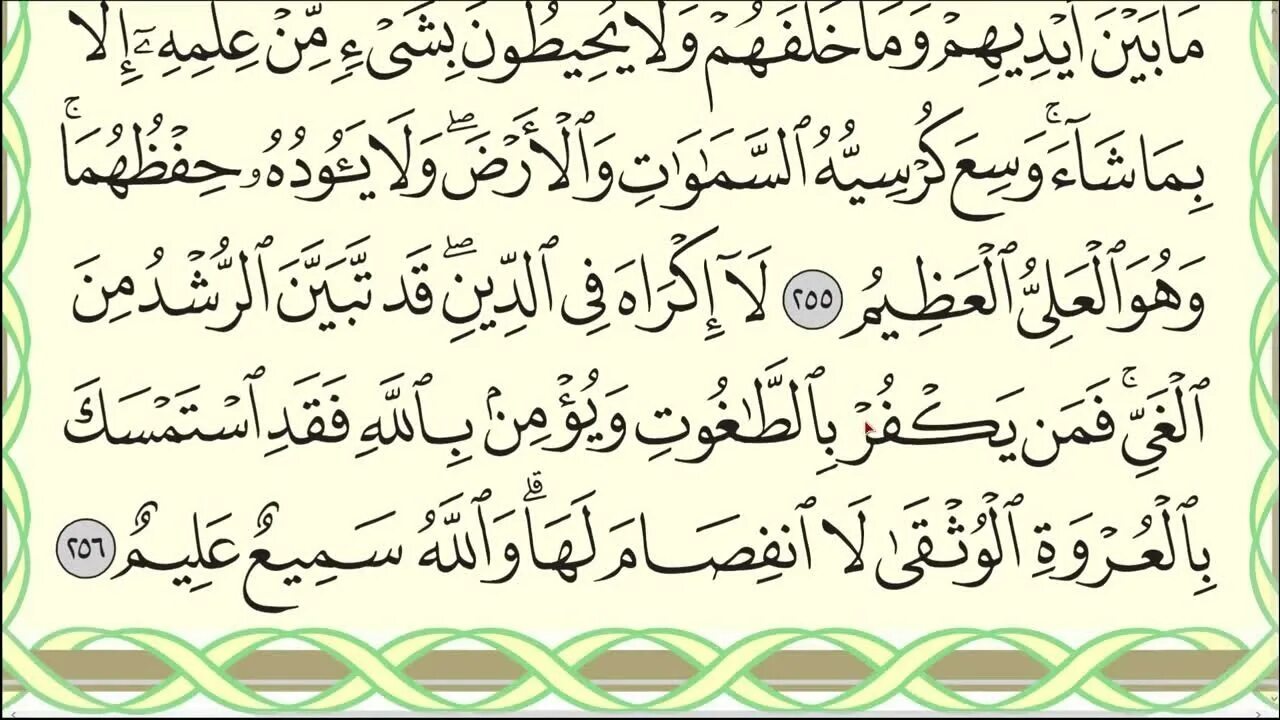 مَا بَيْنَ أَيْدِيهِمْ وَمَا خَلْفَهُمْ وَلَا يُحِيطُونَ بِشَىْءٍ مِّنْ عِلْمِهِۦٓ إِلَّا
بِمَا شَآءَ ۚ وَسِعَ كُرْسِيُّهُ ٱلسَّمَـٰوَٰتِ وَٱلْأَرْضَ ۖ وَلَا يَـُٔودُهُۥ حِفْظُهُمَا ۚ
وَهُوَ ٱلْعَلِىُّ ٱلْعَظِيمُ ٢٥٥ لَآ إِكْرَاهَ فِى ٱلدِّينِ ۖ قَد تَّبَيَّنَ ٱلرُّشْدُ مِنَ
ٱلْغَىِّ ۚ فَمَن يَكْفُرْ بِٱلطَّـٰغُوتِ وَيُؤْمِنۢ بِٱللَّهِ فَقَدِ ٱسْتَمْسَكَ
بِٱلْعُرْوَةِ ٱلْوُثْقَىٰ لَا ٱنفِصَامَ لَهَا ۗ وَٱللَّهُ سَمِيعٌ عَلِيمٌ ٢٥٦